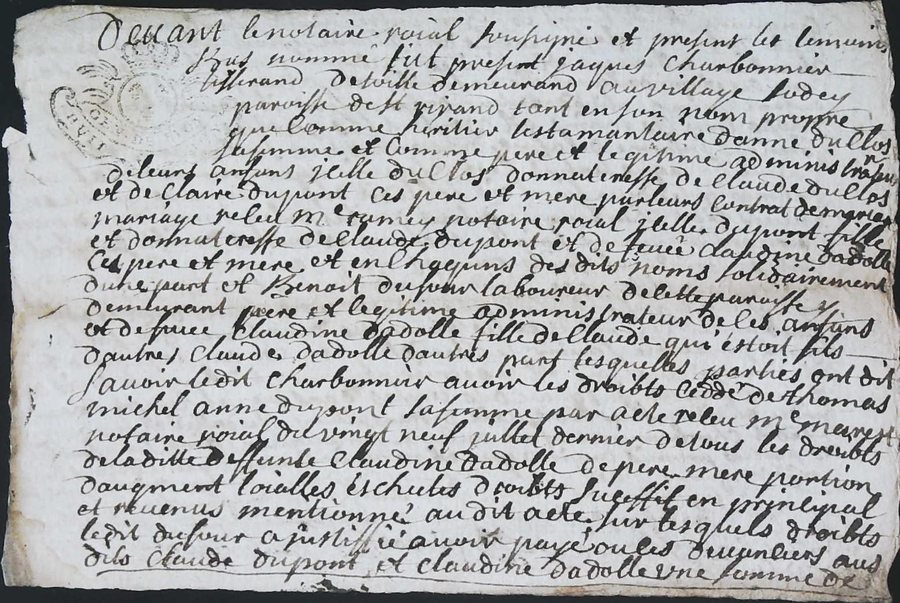 Devant le notaire roial sousigné et present les temoins
bas nommé fut present jaques Charbonnier
tisserand de toille demeurand au village
paroisse de st tant en son nom propre
que comme heritier testamantaire danne du Clos
sa femme et Comme pere et legitime administrateur
de leurs anfans jcelle du Clos donnateresse de Claude du Clos
et de Claire dupont Ces pere et mere par leurs Contrat de
mariage releu Me ramey notaire roial jcelle dupont fille
et donnateresse de Claude dupont et de feuée Claudine dadolle
Ces pere et mere et en Chaquuns des dits noms solidairement
dune part et Benoit dufour laboureur de cette paroisse y
demeurant père et legitime administrateur de ces anfans
et de feuee Claudine dadolle fille de Claude qui estoit fils
dautres Claude dadolle dautres part lesquelles parties ont dit
savoir ledit Charbonnier avoir les droibts Ceddé de thomas
michel anne dupont sa femme par acte releu Me
notaire roial du vingt neuf juillet dernier de tous les droibts
de laditte deffunte Claudine dadolle de pere mere portion
daugment loialles Escheutes droibts sucessif en principal
et revenus mentionné audit acte sur lesquels droibts
ledit dufour a justiffié avoir payé ou les devanciers aus
dits Claude dupont et Claudine dadolle une somme de